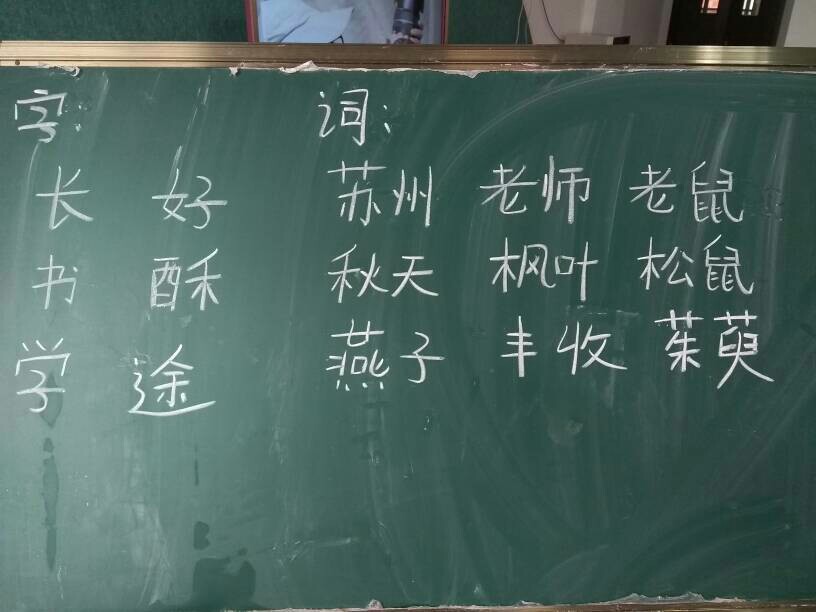 字: 词:
长 好 苏州 老师 老鼠
书 酥 秋天 枫叶 松鼠
学 途 燕子 丰收 茱萸